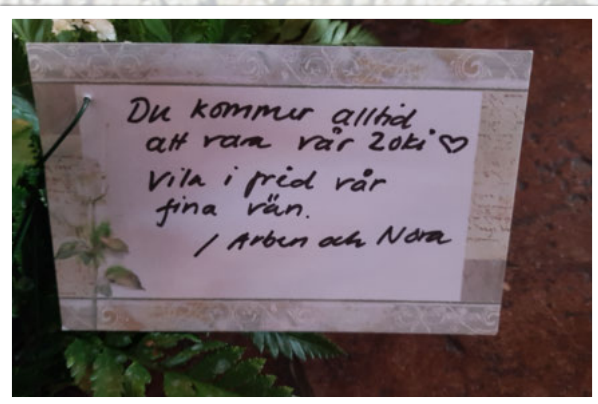 Du kommer alltid
att vara vår Zoki ♡
Vila i frid vår
fina vän.
/ Arben och Nora